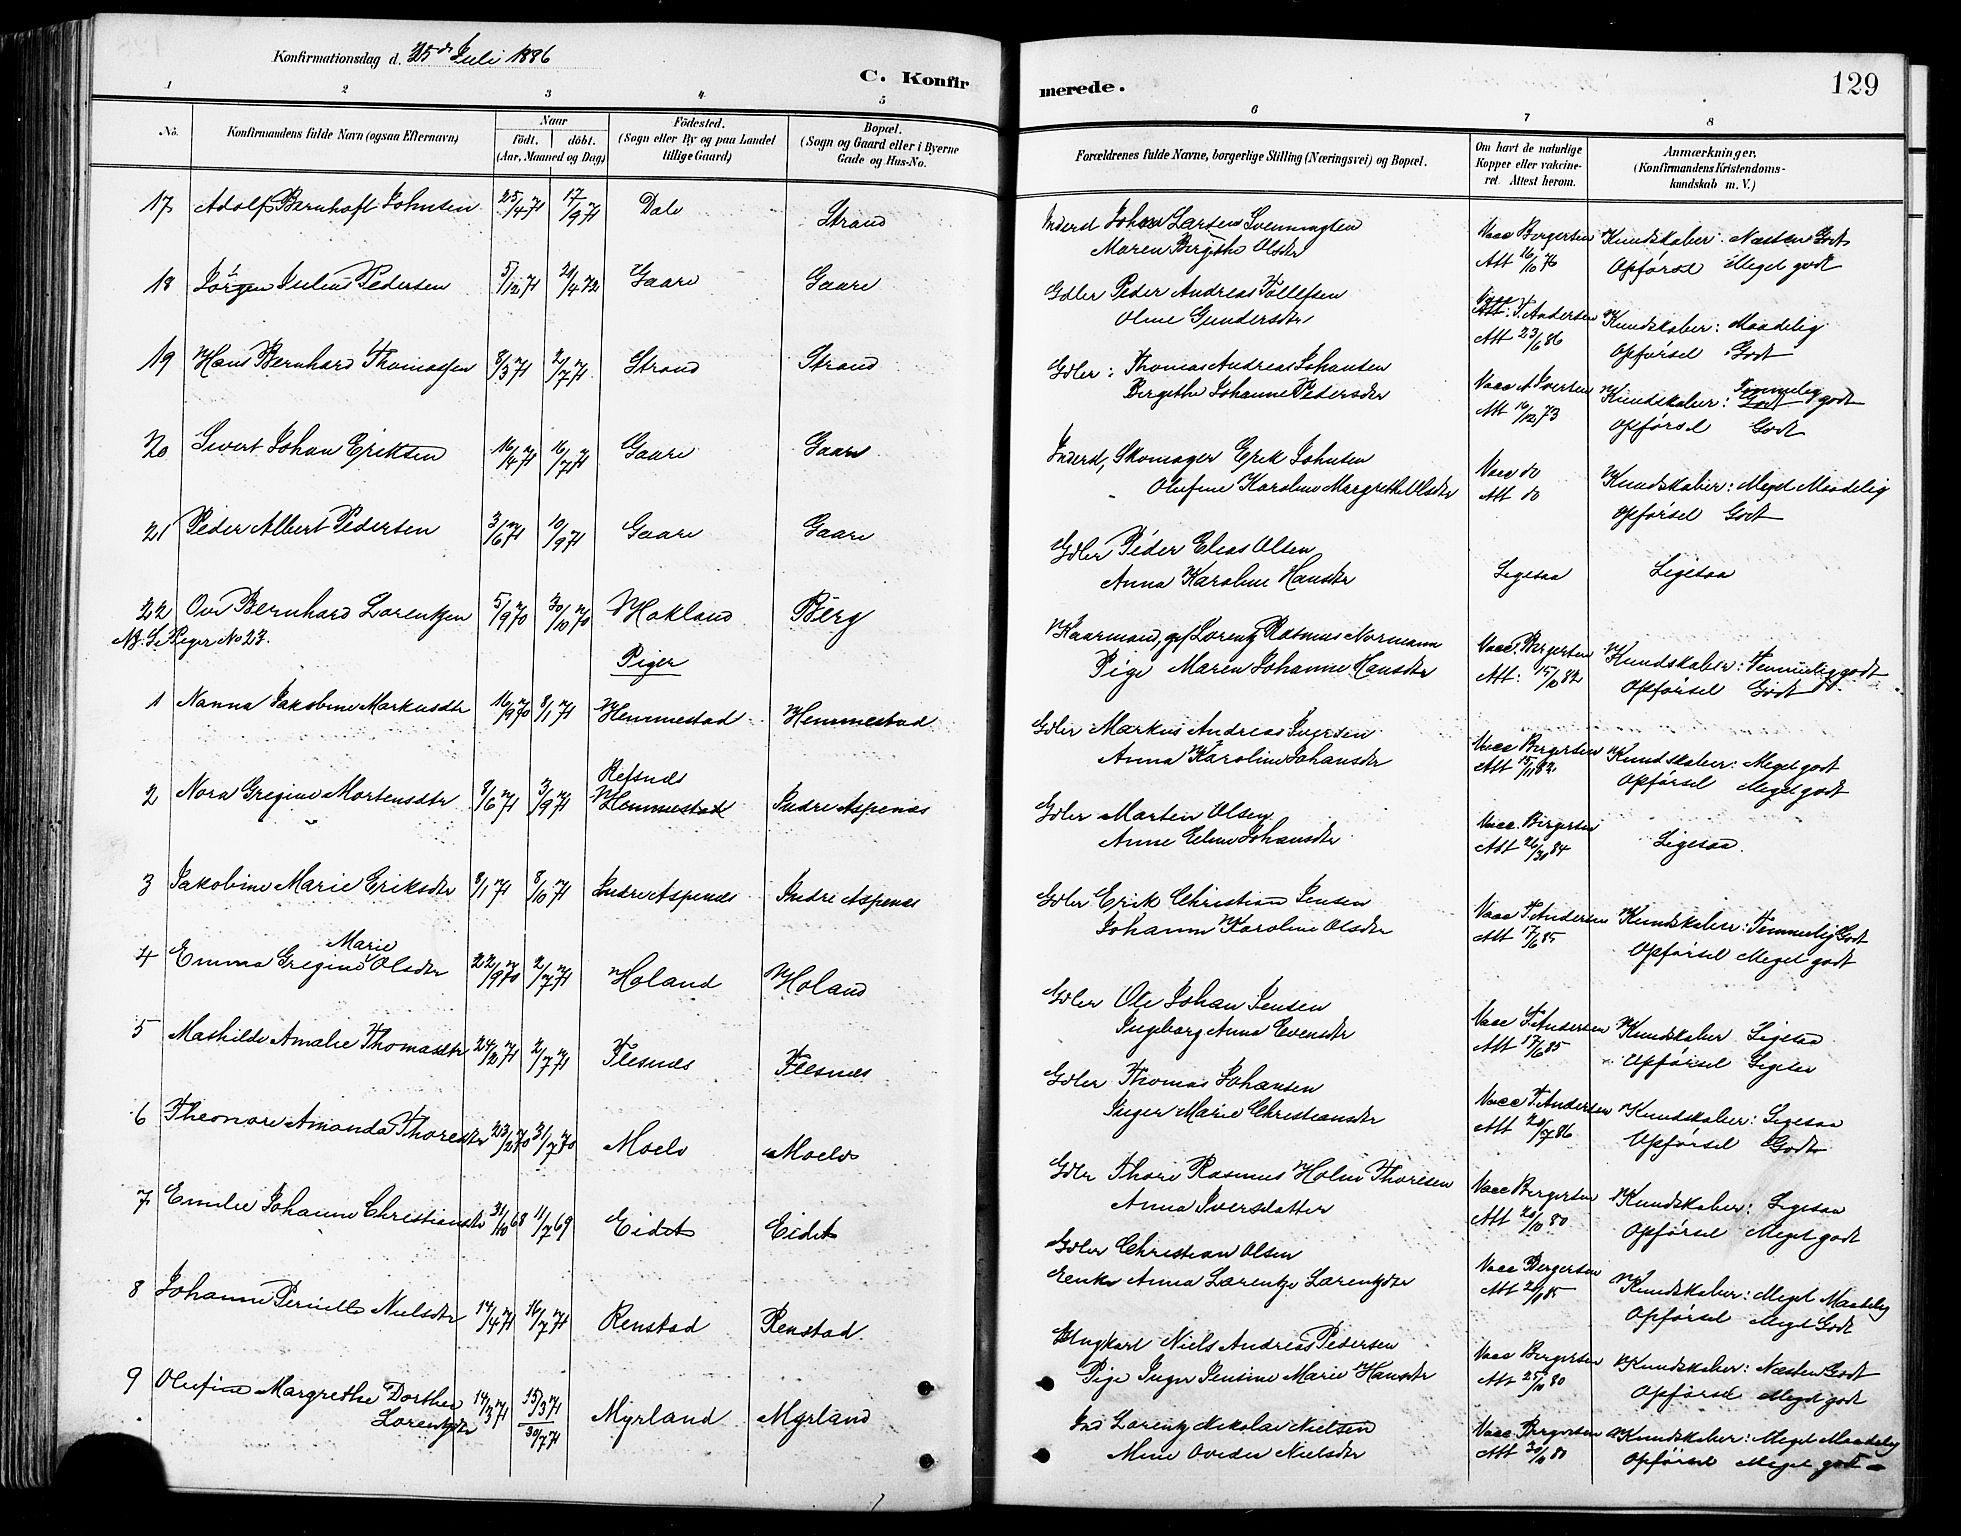 Konfirmationsdag d. 25de Juli 1886
C. Konfirmerede.
129
1 2 3 4 5 6 7 8
No.
Konfirmandens fulde Navn (ogsaa Efternavn)
Naar
födt. döbt.
(Aar, Maaned og Dag)
Födested.
(Sogn eller By og paa Landet
tillige Gaard)
Bopæl.
(Sogn og Gaard eller i Byerne
Gade og Hus-No.
Forældrenes fulde Navne, borgerlige Stilling (Næringsvei) og Bopæl.
Om havt de naturlige
Kopper eller vakcine-
ret. Attest herom.
Anmærkninger.
(Konfirmandens Kristendoms-
kundskab m. V.)
17 Adolf Bernhoft Johnsen 25/4 71 17/9 71 Dale Strand
Inderst Johan Larsen Svenningsen Vacc Bergersen Kundskaber: Næsten Godt
Maren Bergithe Olsdtr Att 16/10 76 Opførsel Meget godt
18 Jörgen Julius Pedersen 5/12 71 21/4 72 Gaare Gaare
Gdler Peder Andreas Tollefsen Vacc T. Andersen Kundskaber: Maadelig
Oline Gundersdtr Att 23/6 86 Opførsel Godt
19 Hans Bernhard Thomassen 8/3 71 2/7 71 Strand Strand
Gdler: Thomas Andreas Johansen Vacc A Iversen Kundskaber: Temmelig godt
Bergethe Johanne Pedersdtr Att 16/12 73 Opførsel Godt
20 Sivert Johan Eriksen 16/4 71 16/7 71 Gaare Gaare
Inderst, Skomager Erik Johnsen Vacc do Kundskaber: Meget Maadelig
Olufine Karoline Margrethe Olsdtr Att do Opførsel Godt
21 Peder Albert Pedersen 3/6 71 10/9 71 Gaare Gaare
Gdler Peder Elias Olsen
Anna Karoline Hansdtr Ligesaa Ligesaa
22 Ove Bernhard Lorentzen 5/9 70 30/10 70 Hokland Berg
NB. Se Piger No 23.
Kaarmand, gift Lorentz Rasmus Normann Vacc. Bergersen Kundskaber: Temmelig godt
Pige Maren Johanne Hansdtr Att: 15/10 82 Opførsel Godt
Piger
1 Nanna Jakobine Markusdtr 16/9 70 8/1 71 Hemmestad Hemmestad
Gdler Markus Andreas Iversen Vacc Bergersen Kundskaber: Meget godt
Anna Karoline Johansdtr Att 15/11 82 Opførsel Meget godt
2 Nora Gregine Mortensdtr 8/6 71 3/9 71 Refsnæs Hemmestad Indre Aspenæs
Gdler Morten Olsen Vacc. Bergersen
Anne Eline Johansdtr Att 26/10 84 Ligesaa.
3 Jakobine Marie Eriksdtr 8/1 71 8/10 71 Indre Aspenæs Indre Aspenæs
Gdler Erik Christian Jensen Vacc T. Andersen Kundskaber: Temmelig Godt
Johanna Karoline Olsdtr Att 17/6 85 Opførsel Meget godt
4 Emma Gregine Marie Olsdtr 22/9 70 2/7 71 Holand Holand
Gdler Ole Johan Jensen Vacc T. Andersen Kundskaber Ligesaa
Ingeborg Anna Evensdtr Att 17/6 85 Opførsel Ligesaa
5 Mathilde Amalie Thomasdtr 24/2 71 2/7 71 Flesnæs Flesnæs
Gdler Thomas Johansen Vacc T. Andersen Kundskaber: Ligesaa
Inger Marie Christiansdtr Att 20/7 86 Opførsel Godt
6 Theonore Amanda Thoresdtr 23/2 70 31/7 70 Moelv Moelv
Gdler Thore Rasmus Holm Thoresen Vacc Bergersen Kundskaber: Ligesaa
Anna Iversdatter Att 20/10 80 Opførsel Meget godt
7 Emilie Johanne Christiansdtr 31/10 68 11/7 69 Eidet Eidet
Gdler Christian Olsen Vacc Bergersen Kundskaber: Meget Maadelig
Enke Anna Larentze Larentzdtr Att 20/9 85 Opførsel Meget Godt
8 Johanne Pernelle Nielsdtr 14/4 71 16/7 71 Renstad Renstad
Ungkarl Niels Andreas Pedersen Vacc Bergersen Kundskaber: Næsten Godt
Pige Inger Jensine Marie Hansdtr Att 25/10 80 Opførsel Meget godt
9 Olufine Margrethe Dorthea Lorentzdtr 14/3 71 15/3 71 30/7 71 Myrland Myrland
Ind Lorentz Nikolai Nielsen Vacc Bergersen Kundskaber: Meget Maadelig
Mine Ovedia Nielsdtr Att 30/10 80 Opførsel Meget godt